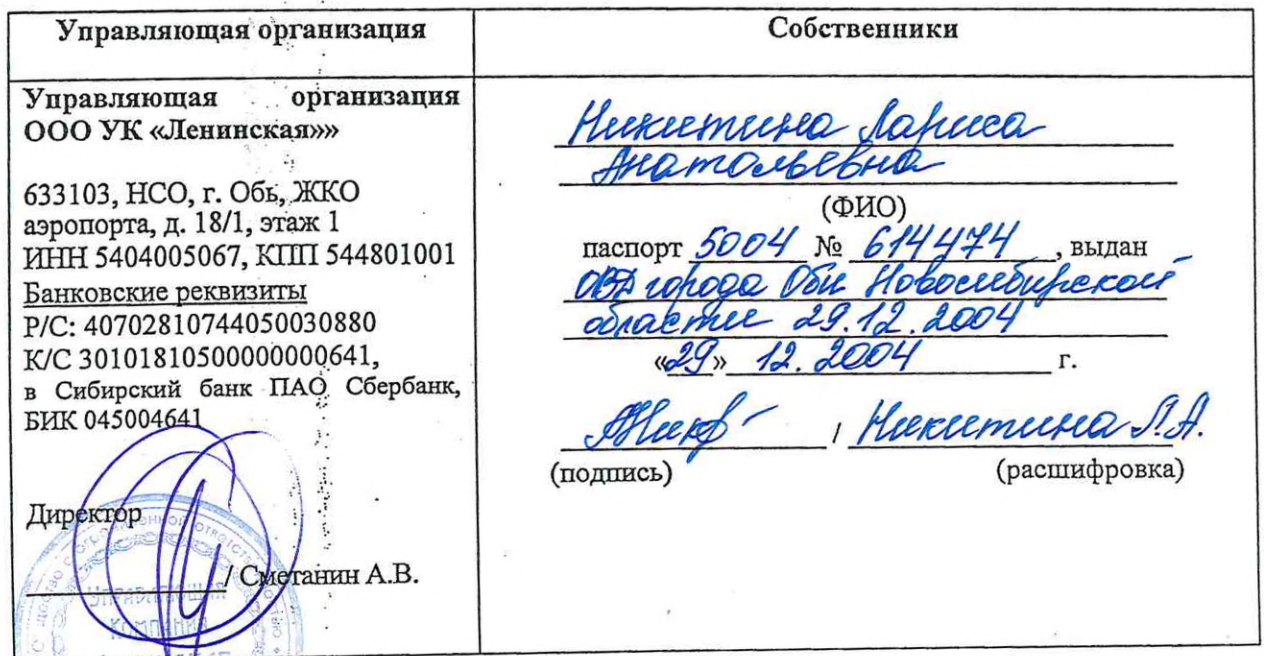 Управляющая организация
Управляющая организация
ООО УК «Ленинская»»
633103, НСО, г. Обь, ЖКО
аэропорта, д. 18/1, этаж 1
ИНН 5404005067, КПП 544801001
Банковские реквизиты
Р/С: 40702810744050030880
К/С 30101810500000000641,
в Сибирский банк ПАО Сбербанк,
БИК 045004641
Директор
/ Сметанин А.В.
УПРАВЛЯЮЩАЯ
КОМПАНИЯ
Собственники
Никитина Лариса
Анатольевна
(ФИО)
паспорт 5004 № 614474, выдан
ОВД города Оби Новосибирской
области 29.12.2004
«29» 12.2004 г.
/ Никитина Л.А.
(подпись) (расшифровка)